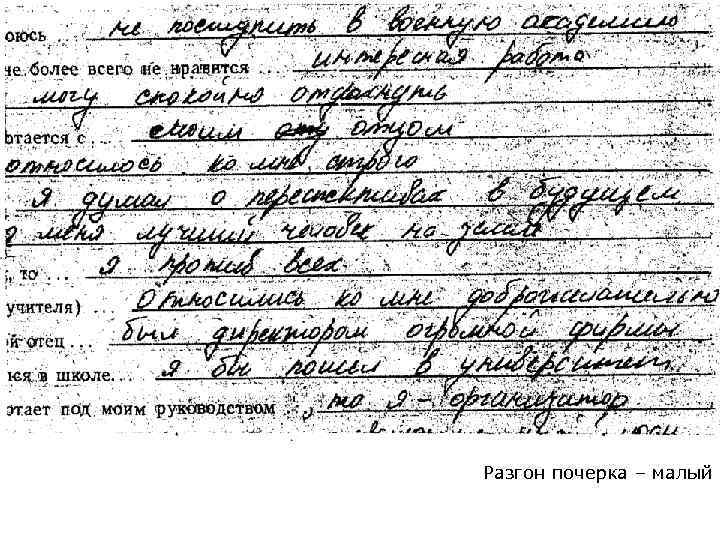 оюсь ... не поступить в военную академию
не более всего не нравится ... интересная работа
могу спокойно отдохнуть
отается с ... своим отцом
относилось ко мне строго
я думал о перспективах в будущем
меня лучший человек на земле
, то ... я против всех
учителя) ... относились ко мне доброжелательно
й отец ... был директором огромной фирмы
ися в школе ... я бы пошел в университет
отает под моим руководством ... , то я – организатор
Разгон почерка – малый